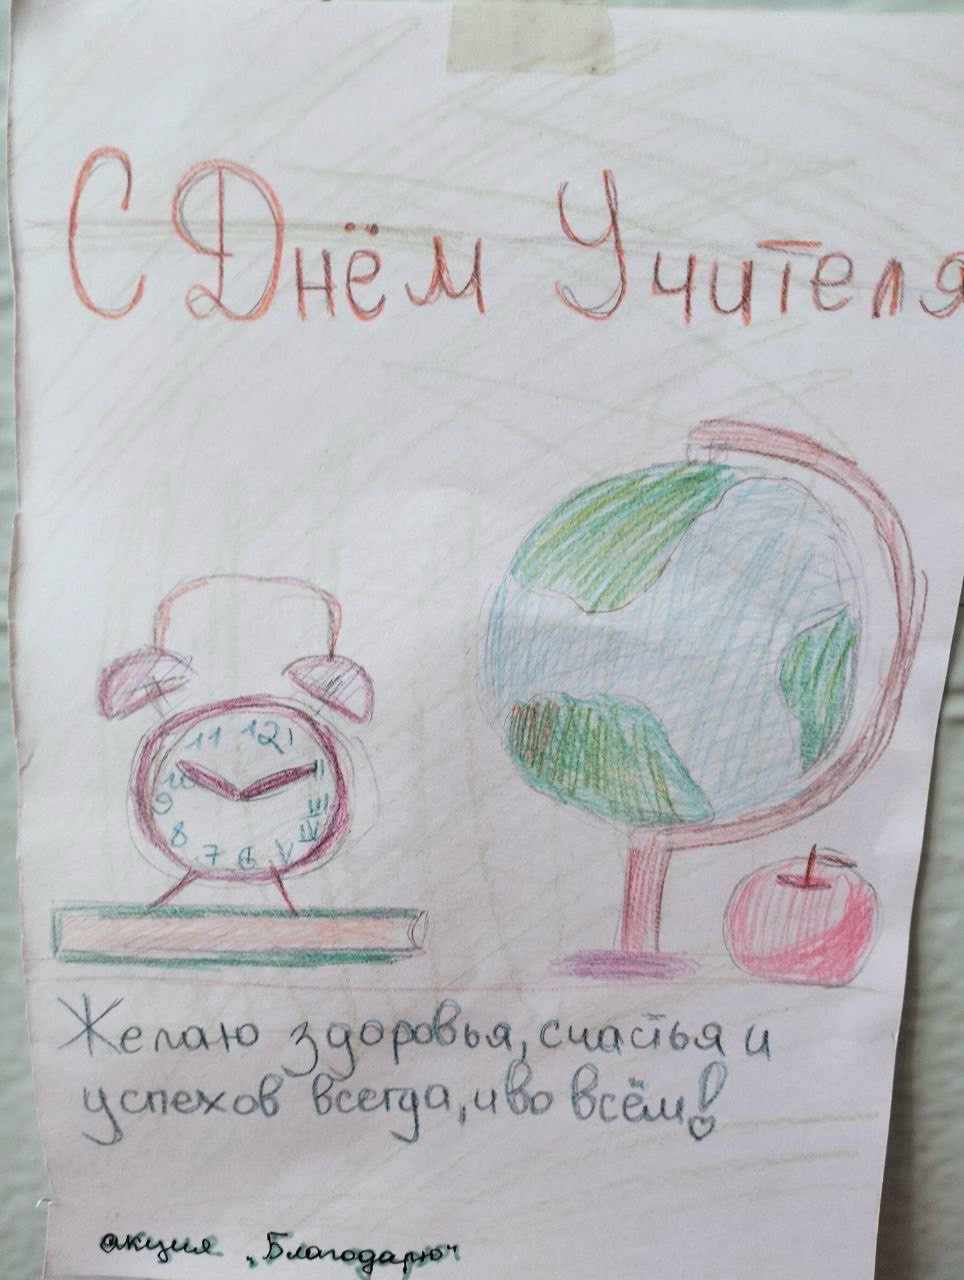 С Днём Учителя
11 12 1
10 II
9 III
8 IV
7 6 V
Желаю здоровья, счастья и
успехов всегда, и во всём!
акция „Благодарю"